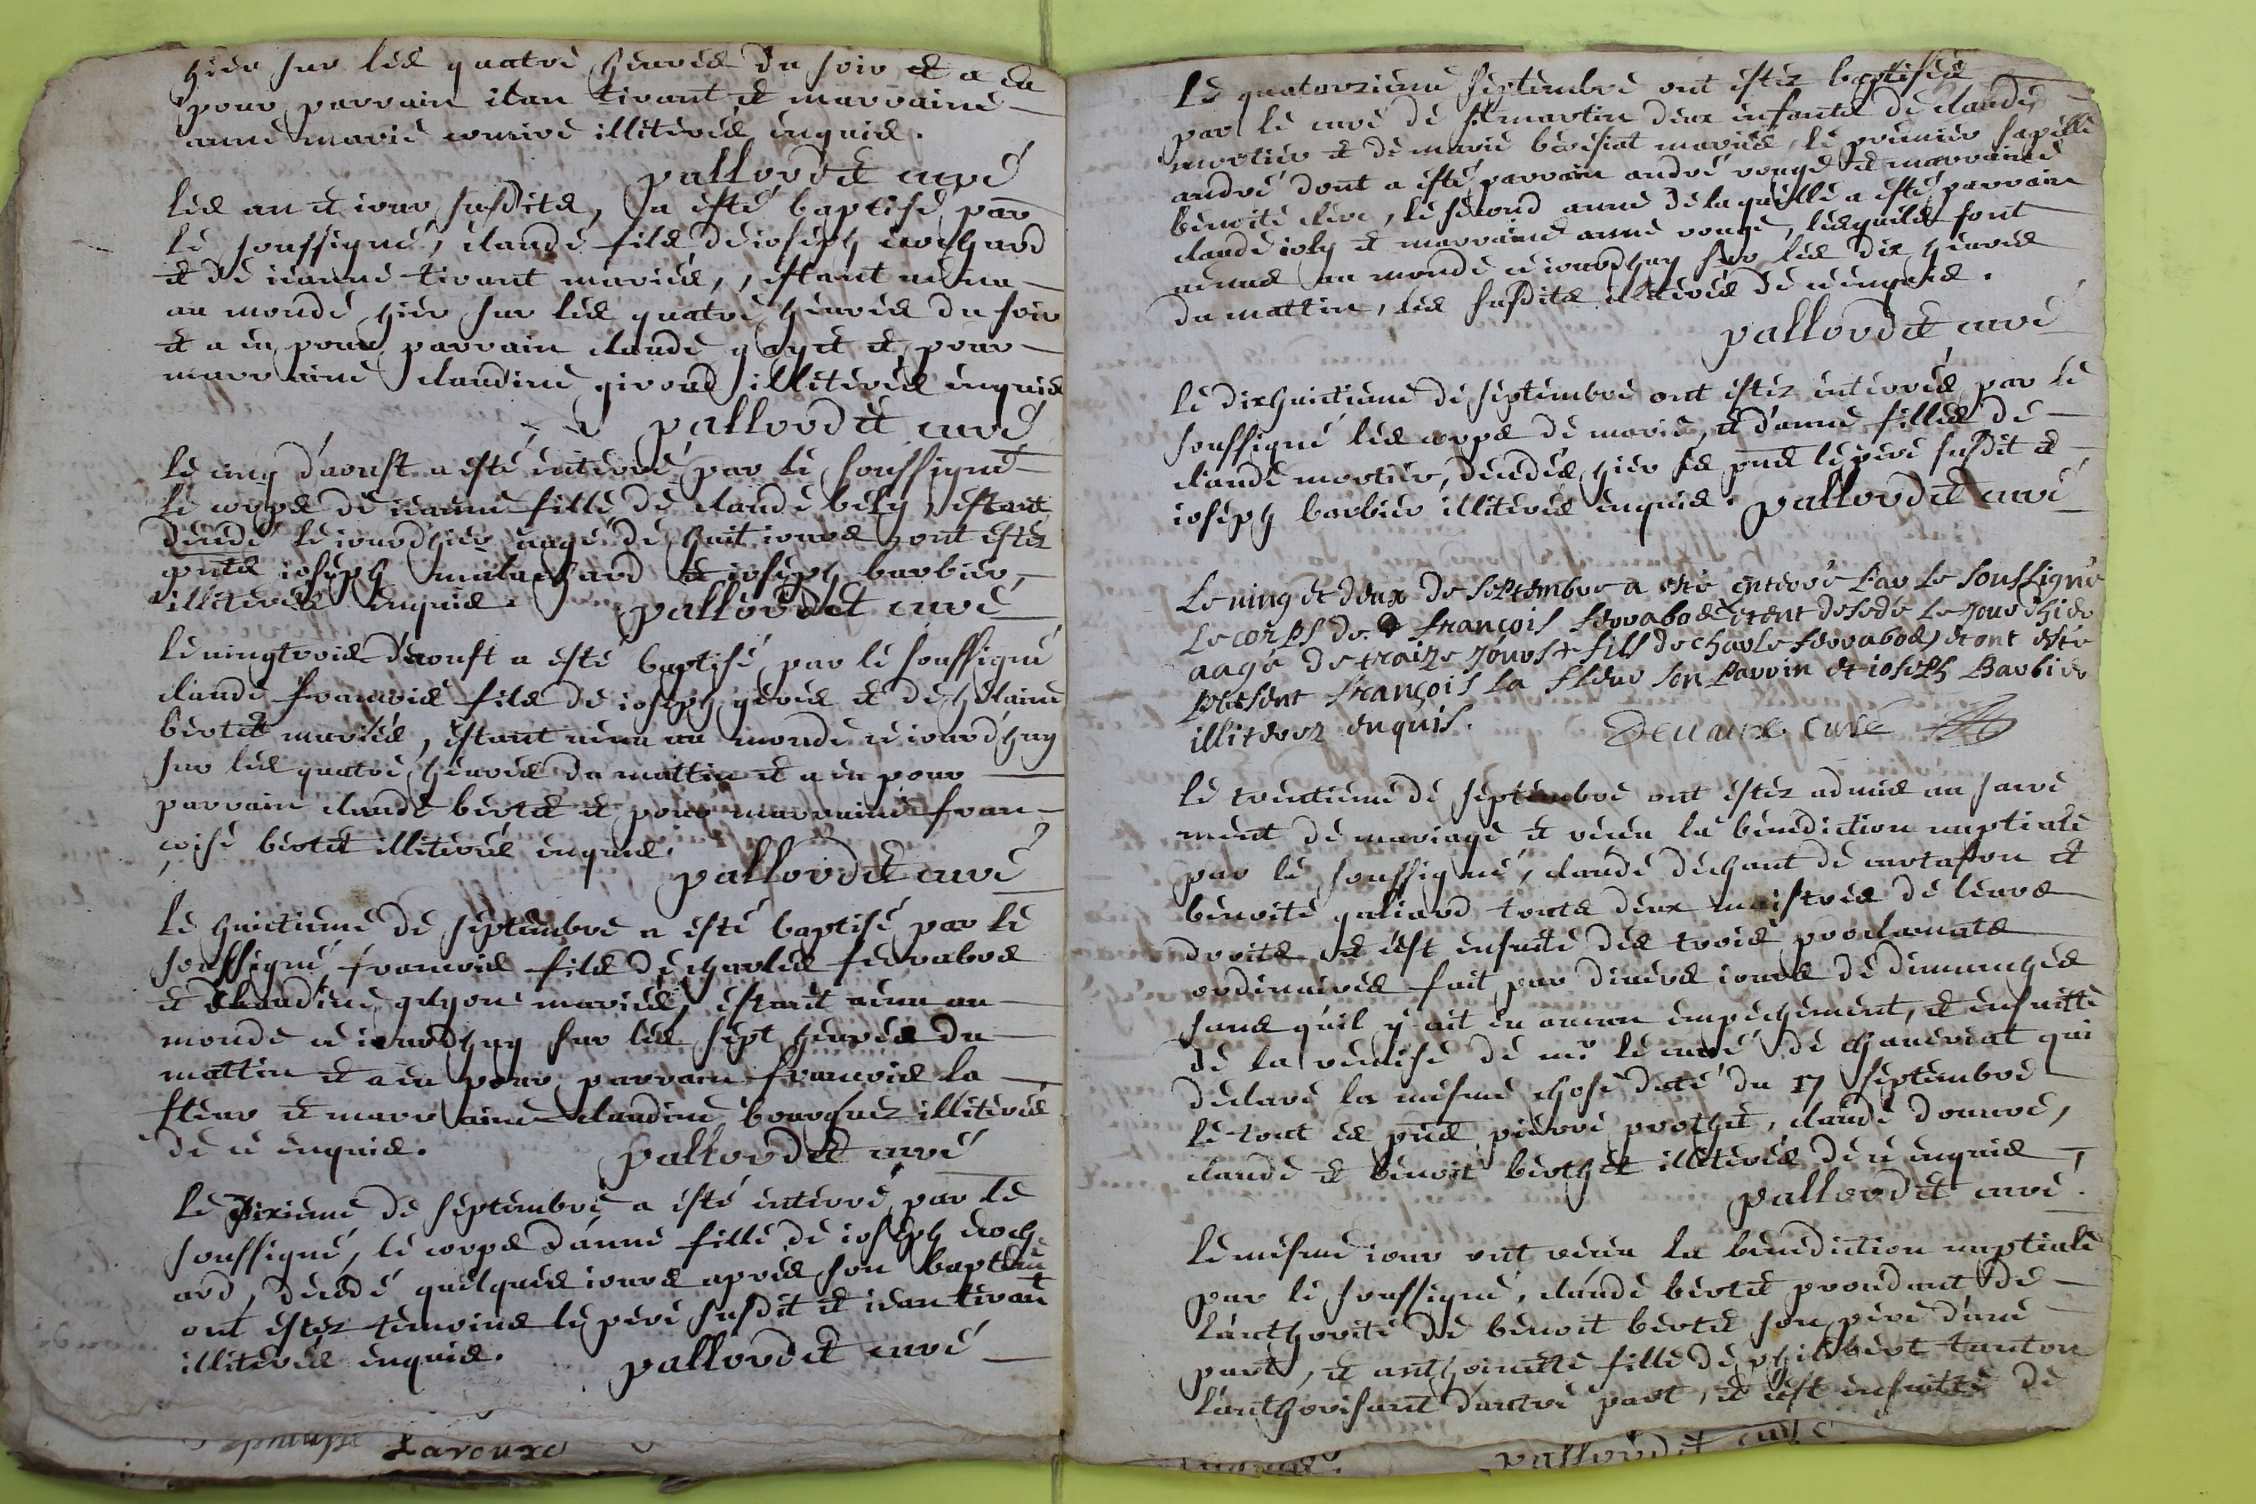 hier sur les quatre heures du soir et a eu
pour parrain iean tivant et marraine
anne marie comire illiterés enquis.
pallordet curé
les an et iour susdits, a esté baptisé par
le soussigné, claude fils de ioseph crochard
et de ieanne tivant mariés, estant venu
au monde hier sur les quatre heures du soir
et a eu pour parrain claude guyet et pour
marraine claudine giroud illiterés enquis
pallordet curé
le cinq d'aoust a esté enterré par le soussigné
le corps de ieanne fille de claude bely, estant
decedé le iourdhier aagé de huit iours ont estez
pnts ioseph malachard et ioseph barbier,
illiterés enquis. pallordet curé
le vingtrois d'aoust a esté baptisé par le soussigné
claude francois fils de ioseph gerés et de helaine
bertet mariés, estant venu au monde ce iourdhuy
sur les quatre heures du mattin et a eu pour
parrain claude bertet et pour marraine fran
coise bertet illiterés enquis.
pallordet curé
le huictieme de septembre a esté baptisé par le
soussigné, francois fils de charles ferrabos
et claudine guyon mariés, estant venu au
monde ce iourdhuy sur les sept heures du
mattin et a eu pour parrain francois la
fleur et marraine claudine bourguez illiterés
de ce enquis. pallordet curé
le dixieme de septembre a esté enterré par le
soussigné, le corps d'anne fille de ioseph croch
ard, decedé quelques iours apres son baptême
ont estez temoins le pere susdit et iean tivant
illiterés enquis. pallordet curé
Laroure
le quatorzieme septembre ont estez baptisés
par le curé de st martin deux enfants de claude
mortier et de marie berisiat mariés, le premier sapelle
andré dont a esté parrain andré rouge et marraine
benoite clerc, le second anne de laquelle a esté parrain
claude ioly et marraine anne rouge, lesquels sont
venus au monde ce iourdhuy sur les dix heures
du mattin, les susdits illiterés de ce enquis.
pallordet curé
le dixhuictieme de septembre ont estez enterrés par le
soussigné les corps de marie, et d'anne filles de
claude mortier, decedés hier es pns le pere susdit et
ioseph barbier illiterés enquis. pallordet curé
Le ving et deux de septembre a esté enterré par le soussigné
le corps de françois ferrabos etant desedé le jour d'hier
aagé de traize jours fils de charle ferrabos, et ont esté
present françois la fleur son parrin et ioseph Barbier
illiterez enquis. Devaux curé
le trentieme de septembre ont estez admis au sacre
ment de mariage et receu la benediction nuptiale
par le soussigné, claude dechant de curtafon et
benoite galiard touts deux maistres de leurs
droits et c'est ensuite des trois proclamats
ordinaires fait par divers iours de dimanches
sans qu'il y ait eu aucun empechement, et ensuitte
de la remise de mr le curé de chaneriat qui
declare la mesme chose daté du 17 septembre
le tout es pns pierre prothet, claude donure,
claude et benoit berthet illiterés de ce enquis
pallordet curé.
le mesme iour ont receu la benediction nuptiale
par le soussigné, claude bertet proudant de
l'authorité de benoit bertet son pere d'une
part, et anthoinette fille de philibert tanton
l'authorisant d'autre part, et c'est ensuitte de
enquis. pallordet curé